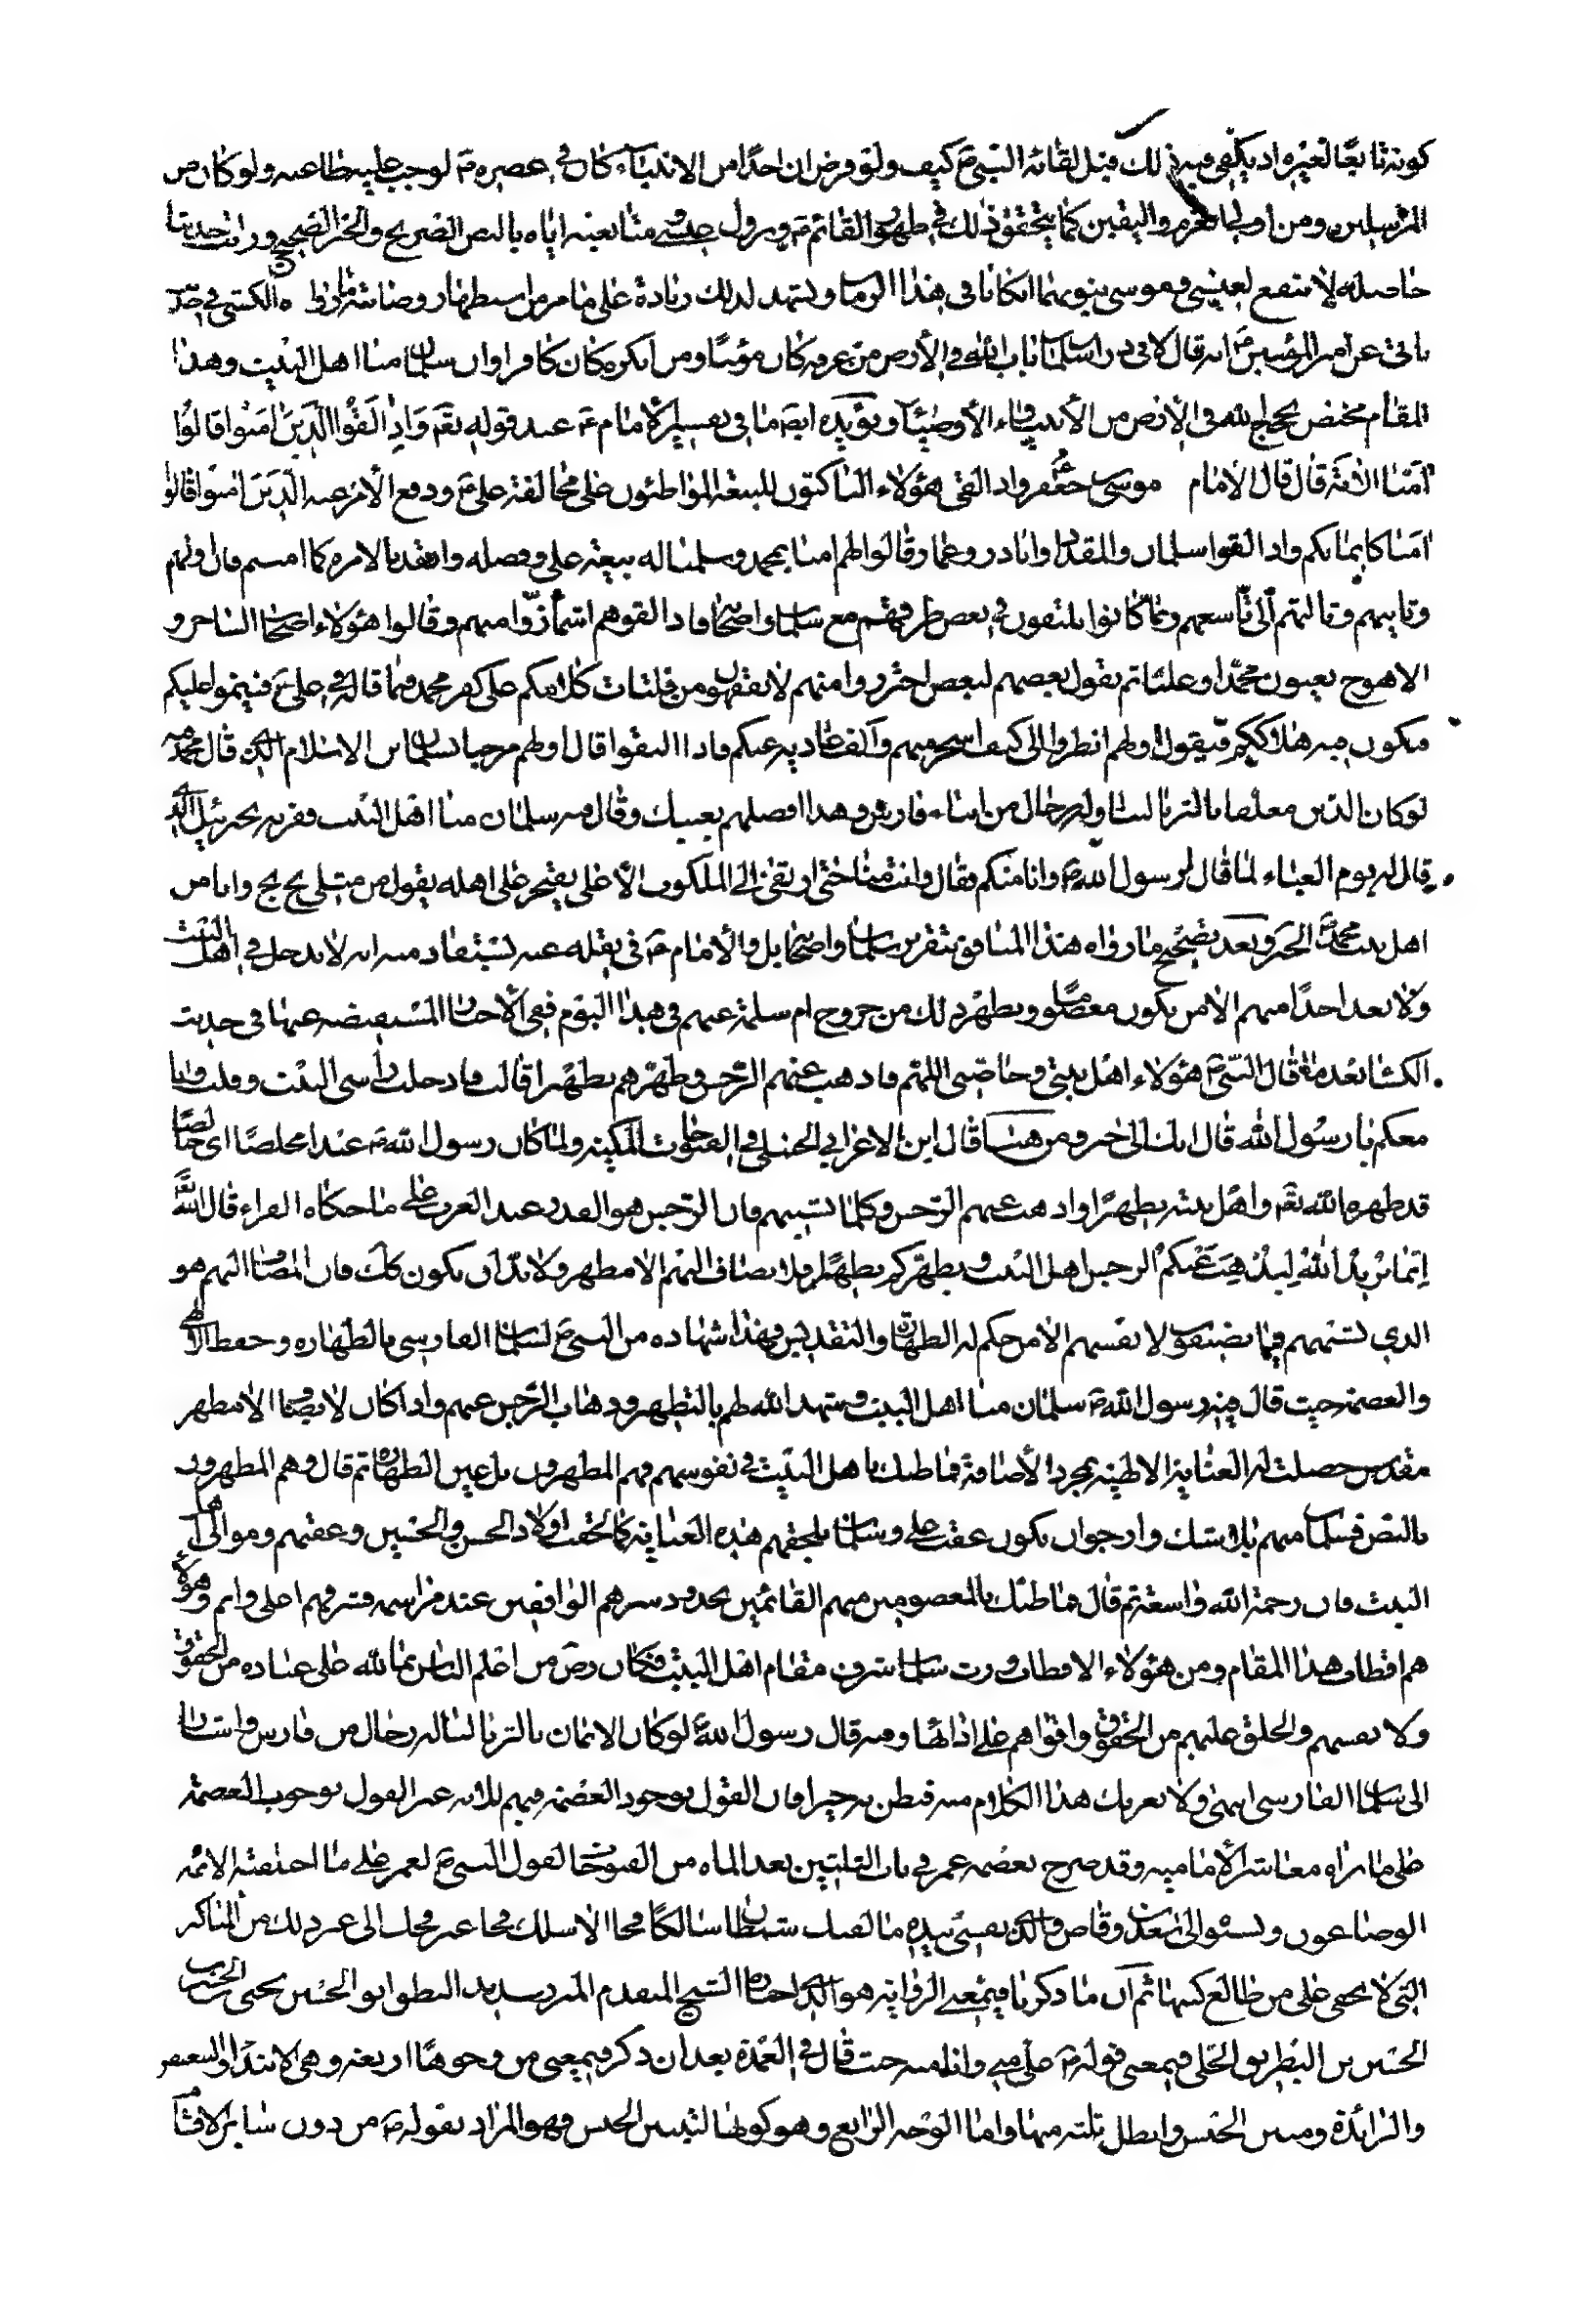 كونه تابعا لغيره اذ يكفى فيه ذلك قبل لقائه النبي ص كيف ولو فرض ان احدا من الانبياء كان فى عصره ص لوجب عليه طاعته ولو كان من
المرسلين ومن اولى العزم واليقين كما يتحقق ذلك فى ظهور القائم ع ونزول عيسى متابعته اياه بالنص الصريح والخبر الصحيح ورابت حديثا
حاصله لا تنفع لعيسى وموسى نبوتهما ان كانا فى هذا الزمان ويشهد لذلك زيادة على ما مر من استظهار وصايته ما رواه الكشى فى حديث
ياتى عن امير المؤمنين ع انه قال لابى ذر ان سلمان باب الله فى الأرض من عرفه كان مؤمنا ومن انكره كان كافرا وان سلمان منا اهل البيت وهذا
المقام مختص بحجج الله فى الارض من الأنبياء والأوصياء ويؤيده ايض ما فى تفسير الامام ع عند قوله تع وَاِذا لَقُوا الَّذينَ امَنُوا قالُوا
امَنّا الاية قال قال الامام موسى بن جعفر واذا لقى هؤلاء الناكثون للبيعة المواطئون على مخالفة على ع ودفع الأمر عنه الَّذينَ امَنُوا قالوا
امنا كايمانكم واذا لقوا سلمان والمقداد واباذر وعمار قالوا لهم امنا بمحمد وسلمنا له بيعة على وفضله وانقدنا لامره كما امنتم فان اولهم
وثانيهم وثالثهم الى تاسعهم ربما كانوا يلتقون فى بعض طرقهم مع سلمان واصحابه فاذا لقوهم اشمأزّوا منهم وقالوا هؤلاء اصحاب الساحر و
الاهوج يعنون محمدا وعليا ثم يقول بعضهم لبعض احترزوا منهم لا يقفون من فلتات كلامكم على كفر محمد فيما قاله فى على ع فينموا عليكم
فيكون فيه هلاككم فيقول اولهم انظروا الى كيف اسخر منهم واكف عاديه عنكم فاذا التقوا قال اولهم مرحبا بسلمان ابن الاسلام الذى قال محمد فيه
لو كان الدين معلقا بالثريا لتناوله رجال من ابناء فارس وهذا افضلهم يعنيك وقال فيه سلمان منا اهل البيت فقرنه بجبرئيل الذى
قال له يوم العباء لما قال لرسول الله ص وانا منكم فقال وانت منا حتى ارتقى الى الملكوت الأعلى يفتخر على اهله يقول من مثلى بخ بخ وانا من
اهل بيت محمد الخبر وبعد تصحيح ما رواه هذا المنافق بتقرير سلمان واصحابه بل والأمام ع فى نقله عنه يستفاد منه انه لا يدخل فى اهل البيت
ولا يعد احدا منهم الا من يكون معصوما ويظهر ذلك من خروج ام سلمة عنهم فى هذا اليوم ففى الأخبار المستفيضه عنها فى حديث
الكساء بعد ما قال النبى ص هؤلاء اهل بيتى وحامتى اللهم فاذهب عنهم الرجس وطهرهم تطهيرا قالت فادخلت راسى البيت وقلت وانا
معكم يا رسول الله قال انك الى خير ومن هنا قال ابن الاعرابي الحنبلى فى الفتوحات المكية ولما كان رسول الله ص عبدا مخلصا اى خالصا
قد طهره الله تع واهل بيته تطهيرا واذهب عنهم الرجس وكلما يشينهم فان الرجس هو القذر عند العرب على ما حكاه الفراء قال الله
اِنَّما يُريدُ اللّهُ لِيُذْهِبَ عَنْكُمُ الرجس اهل البيت ويطهركم تطهيرا فلا يضاف اليهم الا مطهر ولا بد ان يكون كك فان المضاف اليهم هو
الذي يشبههم فما يضيفون لانفسهم الا من حكم له الطهارة والتقديس فهذا شهاده من النبى ص لسلمان الفارسى بالطهاره وحفظ الالهى
والعصمة حيث قال فيه رسول الله ص سلمان منا اهل البيت وشهد الله لهم بالتطهير وذهاب الرجس عنهم واذا كان لا يضاف الا مطهر
مقدس حصلت له العناية الالهية بمجرد الأضافة فما ظنك باهل البيت فى نفوسهم فهم المطهرون بل عين الطهارة ثم قال وهم المطهرون
بالنص فسلمان منهم بلا شك وارجو ان يكون عقب على وسلمان يلحقهم هذه العناية كما لحقت اولاد الحسن والحسين وعقبهم وموالى اهل
البيت فان رحمة الله واسعة ثم قال فما ظنك بالمعصومين منهم القائمين بحدود سيدهم الواقفين عند مراسمه فشرفهم اعلى واتم وهؤلاء
هم اقطاب هذا المقام ومن هؤلاء الاقطاب ورث سلمان شرف مقام اهل البيت فكان رض من اعلم الناس بما لله على عباده من الحقوق
ولانفسهم والخلق عليهم من الحقوق واقواهم على ادائها وفيه قال رسول الله لو كان الايمان بالثريا لناله رجال من فارس واشار
الى سلمان الفارسى انتهى ولا يغرنك هذا الكلام منه فتظن به خيرا فان القول بوجود العصمة فيهم للاية غير القول بوجوب العصمة
على ما يراه معاشر الأمامية وقد صرح بعصمة عمر فى باب الثلثين بعد الماه من الفتوحات لقول النبى ص لعمر على ما اختلقته الائمة
الوضاعون ونسبوا الى سعد بن وقاص والذى نفسى بيده ما لقيك شيطان سالكا فجا الا سلك فجا غير فجك الى غير ذلك من المناكر
التى لا يخفى على من طالع كتبه ثم ان ما ذكرنا فى معنى الرواية هو الذى اختاره الشيخ المقدم المتر سديد البطو ابو الحسين يحيى بن الحسن بن
الحسين بن البطريق الحلى فى معنى قوله ص على منى وانا منه حيث قال فى العمدة بعد ان ذكر فى معنى من وجوها اربعة وهى الابتداء والتبعيض
والزائدة وتبيين الجنس وابطل ثلثه منها واما الوجه الرابع وهو كونها لتبيين الجنس فهو المراد بقوله ص من دون سائر الاقسام